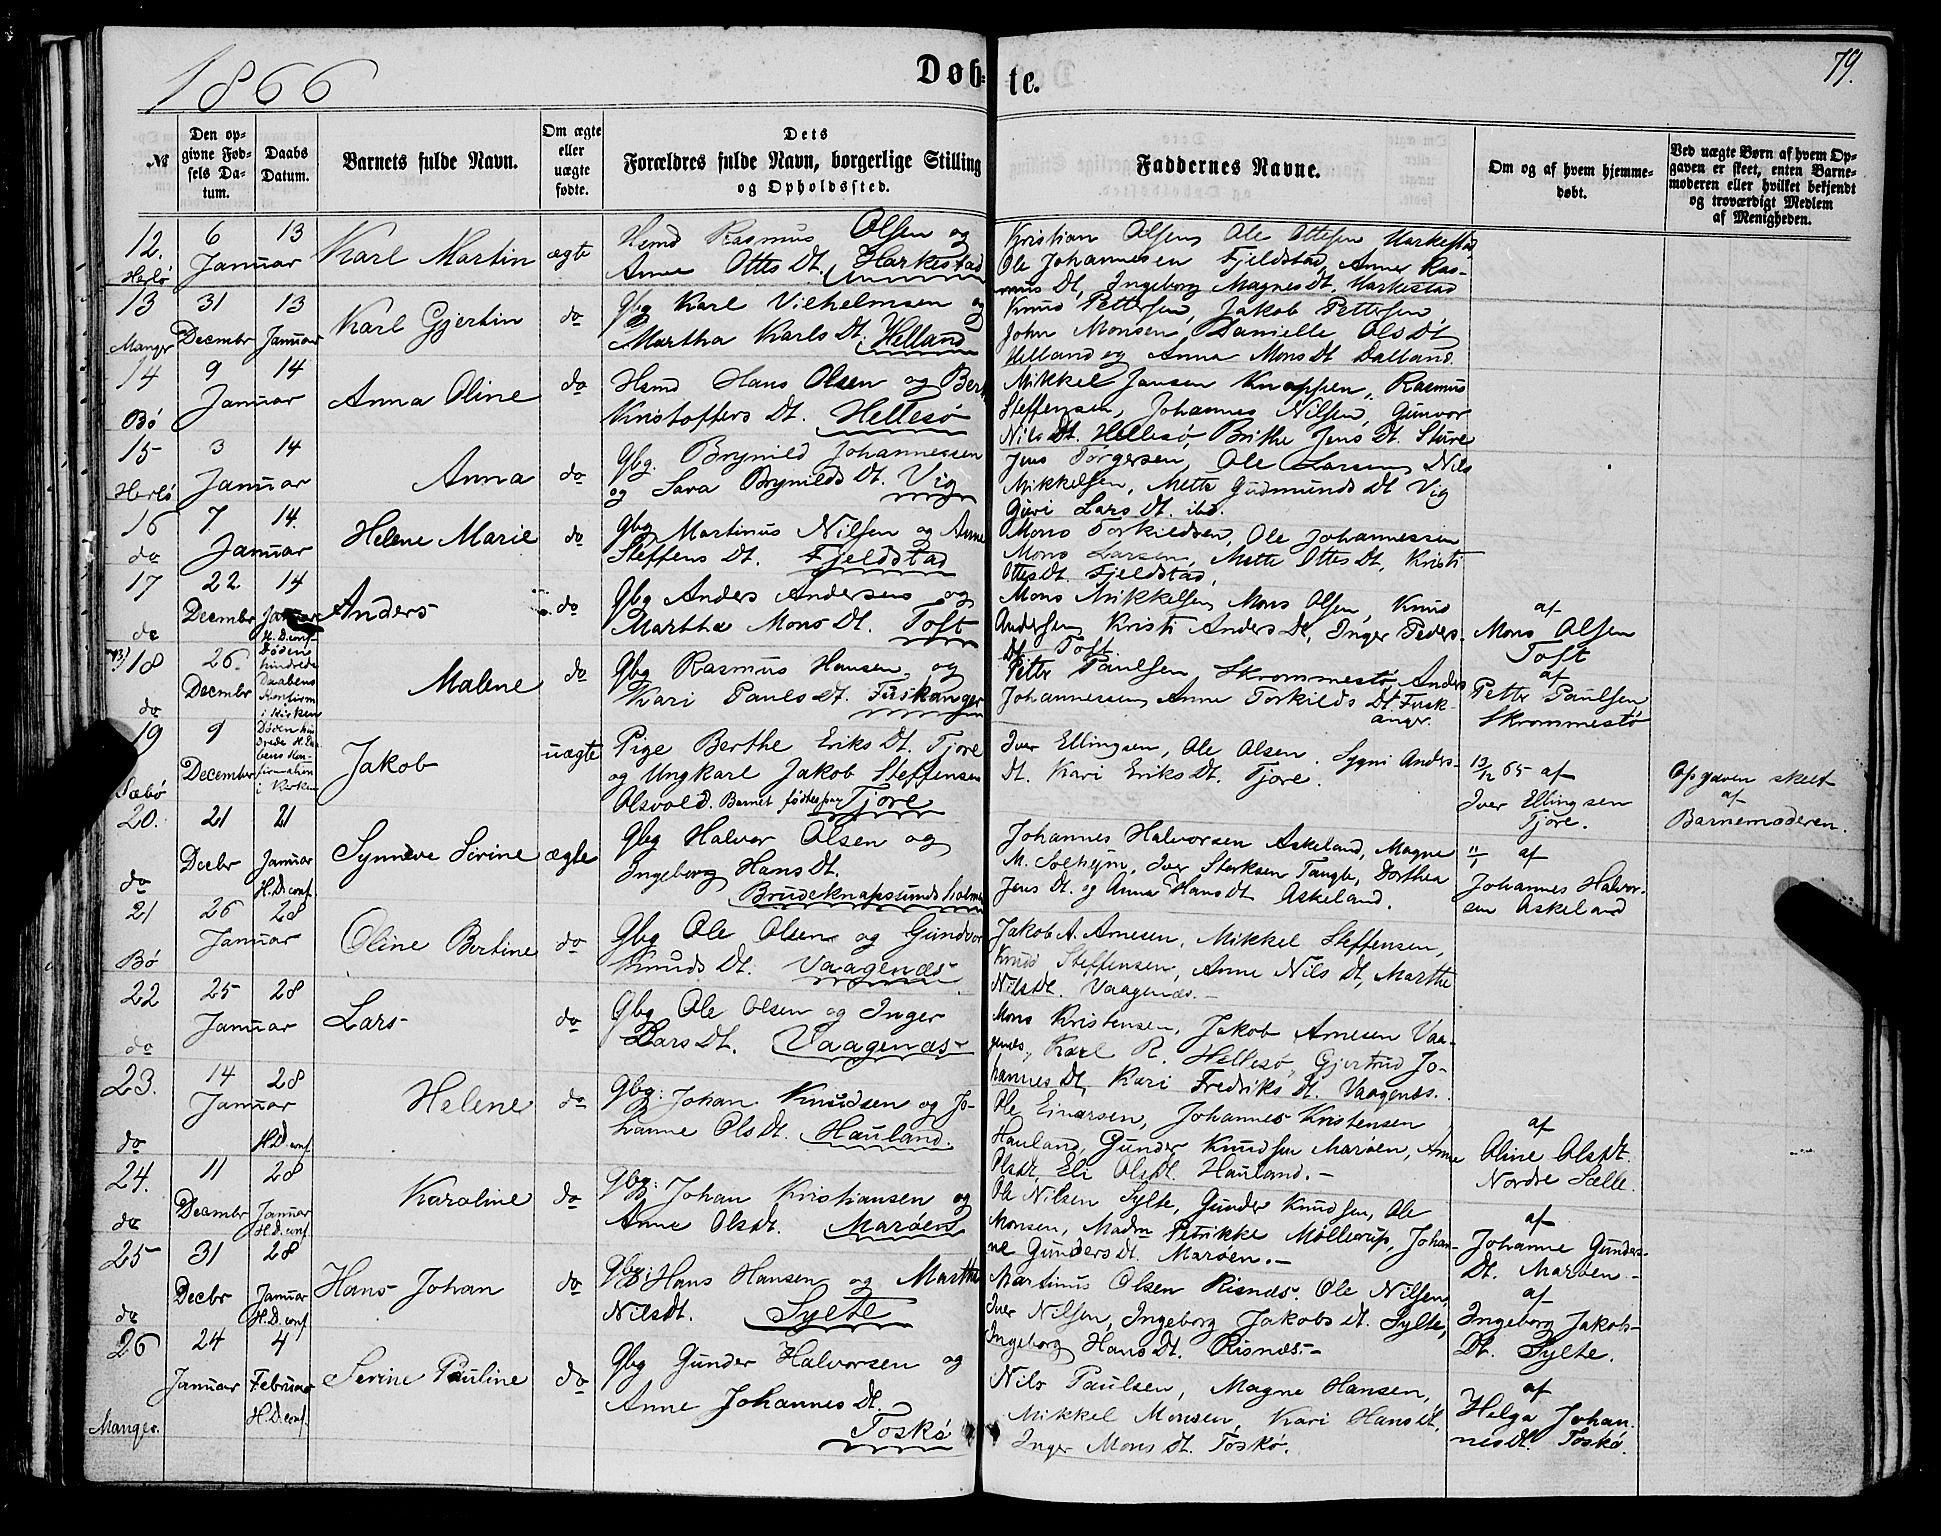 1866
Døbte.
79.
№
Den opgivne Fødsels Datum.
Daabs Datum.
Barnets fulde Navn.
Om ægte eller uægte fødte.
Dets Forældres fulde Navn, borgerlige Stilling og Opholdssted.
Faddernes Navne.
Om og af hvem hjemmedøbt.
Ved uægte Børn af hvem Opgaven er skeet, enten Barnemoderen eller hvilket bekjendt og troværdigt Medlem af Menigheden.
12. Herlø
6 Januar
13
Karl Martin
ægte
Hsmd Rasmus Olsen og
Anne Ottes Dt. Harkestad
Kristian Olsen, Ole Ottesen Harkestad,
Ole Johannesen Fjeldstad, Anne Ras-
mus Dt, Ingeborg Magnes Dt. Harkestad
13 Manger
31 Decembr
13 Januar
Karl Gjertin
do
Gbg Karl Vilhelmsen og
Martha Karls Dt. Helland
Knud Pettersen, Jakob Pettersen,
John Monsen, Danielle Ols Dt
Helland og Anna Mons Dt Dalland.
14 Bø
9 Januar
14
Anna Oline
do
Hsmd Hans Olsen og Berte
Kristoffers Dt. Hellesø
Mikkel Jansen Knappen, Rasmus
Steffensen, Johannes Nilsen, Gunvor
Nils Dt. Hellesø, Brithe Jens Dt. Sture
15 Herlø
3 Januar
14
Anna
do
Gbg. Brynild Johannessen
og Sara Brynilds Dt. Vig
Jens Torgersen, Ole Larsen, Nils
Mikkelsen, Mette Gudmunds Dt Vig
Guri Lars Dt. ibd.
16 do
7 Januar
14.
Helene Marie
do
Gbg Martinus Nilsen og Anne
Steffens Dt. Fjeldstad
Mons Torkildsen, Ole Johannessen
Mons Larsen, Mette Ottes Dt, Kristi
Ottes Dt. Fjeldstad,
17 do
22 Decembr
14 Januar
H. D. conf.
Anders
do
Gbg Anders Andersen og
Martha Mons Dt. Toft
Mons Mikkelsen, Mons Olsen, Knud
Andersen, Kristi Anders Dt, Inger Peders-
Dt Toft
af
Mons Olsen
Toft
18 do
26 Decembr
Døden
hindrede
Daabens
Konfirm
i Kirken
Malene
do
Gbg Rasmus Hansen og
Kari Pauls Dt. Fuskanger
Petter Paulsen Skrommestø, Anders
Johannessen, Anne Torkilds Dt. Fusk-
anger.
af
Petter Paulsen
Skrommestø
19 Sæbø
9 December
Døden hin
drede H. Da
bens Kon-
firmation
i Kirken
Jakob
uægte
Pige Berthe Eriks Dt. Tjore
og Ungkarl Jakob Steffensen
Alsvold. Barnet født paa Tjore
Iver Ellingsen, Ole Olsen, Sygni Anders-
Dt. Kari Eriks Dt. Tjore.
13/12 65 af
Iver Ellingsen
Tjore.
Opgaven skeet
af
Barnemoderen.
20. do
21 Decbr
21 Januar
H. D. conf.
Synneve Sirine
ægte
Gbg Halvor Olsen og
Ingeborg Hans Dt.
Brudeknapsundsholmen
Johannes Halvorsen Askeland, Magne
M. Solhejm, Iver Sterksen Tangte, Dorthea
Jens Dt. og Anna Hans Dt Askeland.
11/1 af
Johannes Halvor-
sen Askeland
21 Bø
26 Januar
28
Oline Bertine
do
Gbg Ole Olsen og Gundvor
Knuds Dt. Vaagenæs
Jakob A. Arnesen, Mikkel Steffensen,
Knud Steffensen, Anne Nils Dt, Marthe
Nils Dt. Vaagenæs.
22 do
25 Januar
28
Lars
do
Gbg Ole Olsen og Inger
Lars Dt. Vaagenæs
Mons Kristensen, Jakob Arnesen Vaa-
genæs, Karl R. Hellesø, Gjertrud Jo-
hannes Dt, Kari Fredriks Dt. Vaagenæs.
23. do
14 Januar
28
H. D. conf.
Helene
do
Gbg: Johan Knudsen og Jo-
hanne Ols Dt. Hauland.
Ole Einarsen, Johannes Kristensen
Hauland, Gunder Knudsen Marøen, Anne
Olsdt, Eli Olsdt. Hauland.
af
Oline Olsdt.
Nordre Sælle.
24. do
11 Decembr
28 Januar
H. D. conf.
Karoline
do
Gbg: Johan Kristiansen og
Anne Olsdt. Marøen
Ole Nilsen Sylte, Gunder Knudsen, Ole
Monsen, Madm Petrikke Møllerup, Johan-
ne Gunders Dt. Marøen.
af
Johanne Gunders-
Dt. Marøen.
25 do
31 Decbr
28 Januar
H. D. conf.
Hans Johan
do
Gbg: Hans Hansen og Marthe
Nilsdt. Sylte
Martinus Olsen Risnæs. Ole Nilsen,
Iver Nilsen, Ingeborg Jakobs Dt. Sylte,
Ingeborg Hans Dt. Risnæs.
af
Ingeborg Jakobs-
Dt. Sylte.
26 Manger.
24 Januar
4 Februar
H. D. conf.
Serine Pauline
do
Gbg Gunder Halvorsen og
Anne Johannes Dt.
Toskø
Nils Paulsen, Magne Hansen,
Mikkel Monsen, Kari Hansdt,
Inger Mons Dt. Toskø.
af
Helga Johan
nesdt. Toskø.